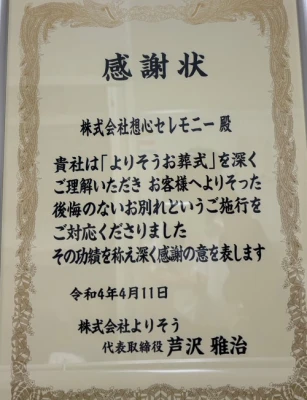 感謝状
株式会社想心セレモニー 殿
貴社は「よりそうお葬式」を深く
ご理解いただき お客様へよりそった
後悔のないお別れというご施行を
ご対応くださりました
その功績を称え深く感謝の意を表します
令和4年4月11日
株式会社よりそう
代表取締役 芦沢 雅治